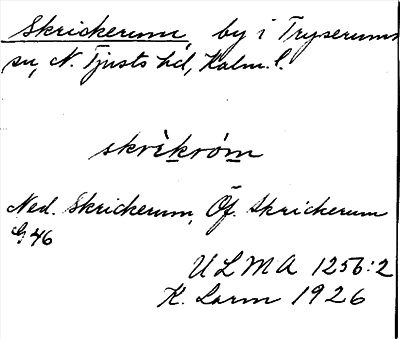 Skrickerum, by i Tryserums
sn, N. Tjusts hd, Kalm. l.
skrìkróm
Ned. Skrickerum, Öf. Skrickerum
G 46
ULMA 1256:2
K. Larm 1926